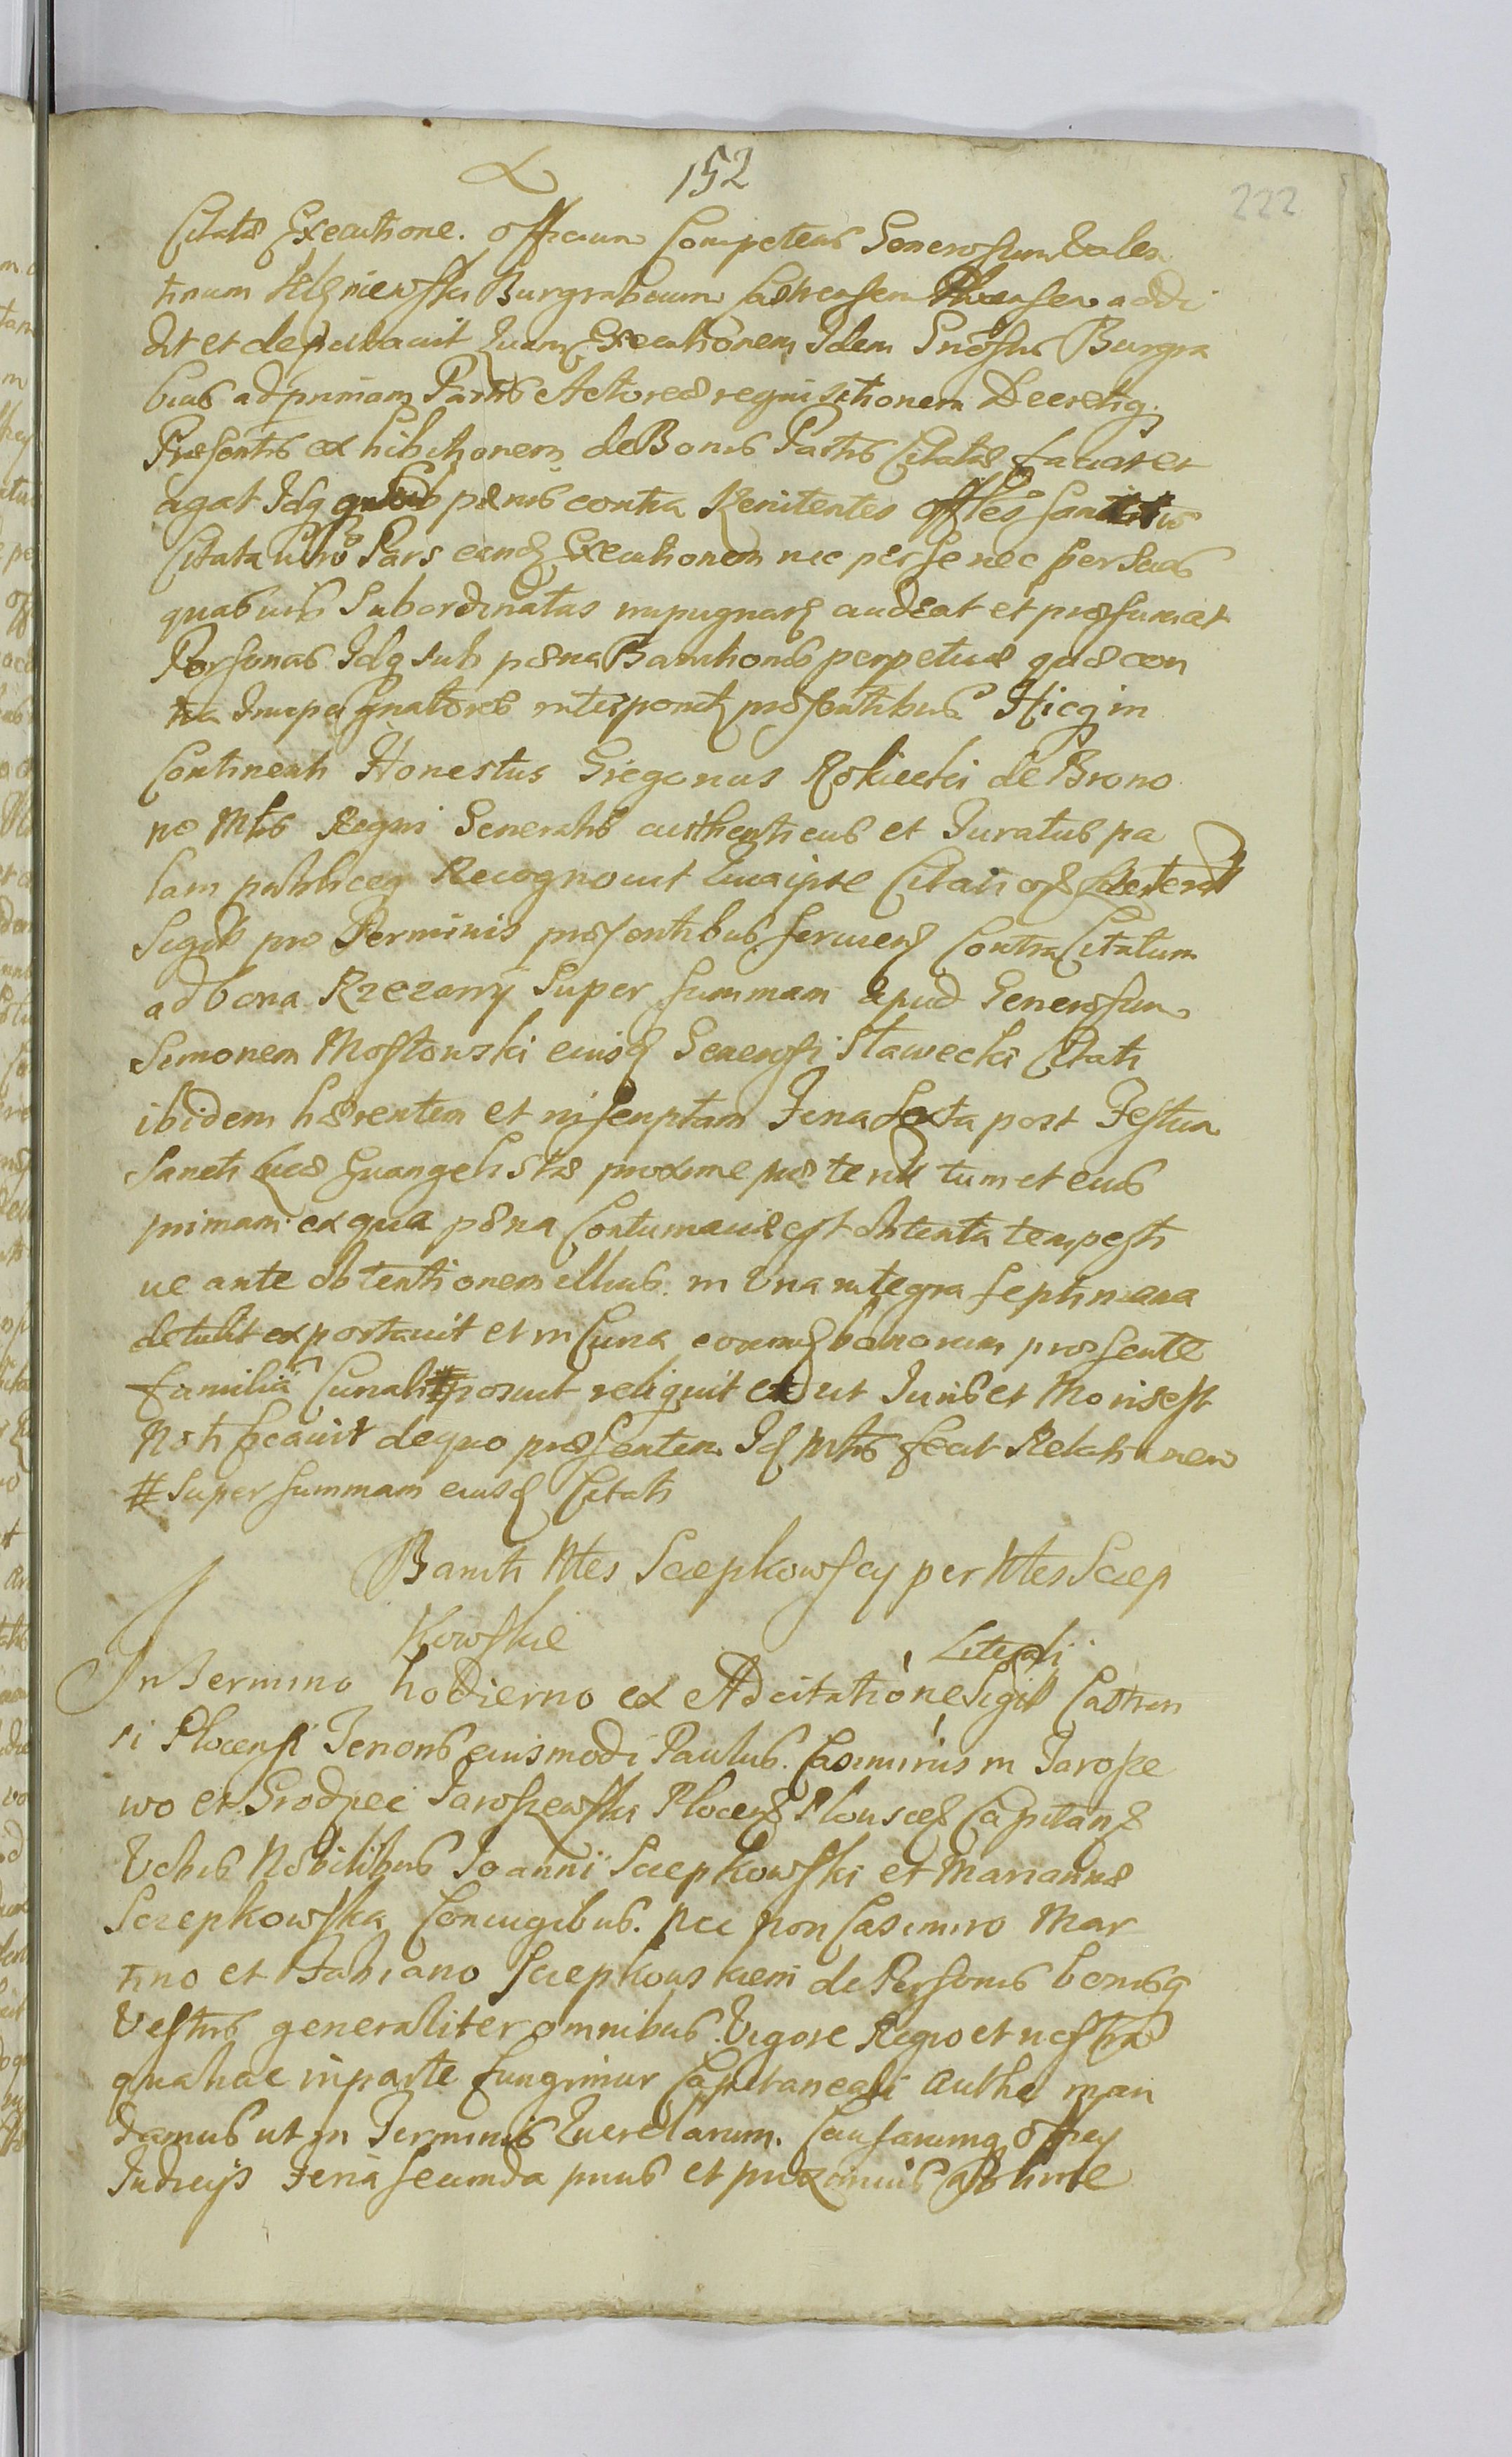 152
222
Citatæ Executione. Officium Competens Generosum Valen
tinum Burgrabium Castrensem addi
dit et deputavit Quam Executionem Idem Gnosus Burgra
bius ad primam Partis Actoreæ requisitionem Decretiq
Præsentis exhibitionem de Bonis Partis Citatæ faciat et
agat Idq pænis contra Renitentes offles
Citata vero Pars eand Executionem nec per se nec per suas
quasvis Subordinatas impugnare audeat et præsumat
Personas Idq sub pæna Bannitionis perpetuæ quæ con
tra Impugnatores interponit præsentibus Hicq in
Continenti Honestus Gregorius Rokicki de Brono
no Mtis Regni Generalis authenticus et Juratus pa
lam publiceq Recognovit Quia ipse Citaõs
Sigill pro Terminis præsentibus servien Contra Citatum
ad bona Rzezany Super Summam apud Generosum
Simonem Mostowski eiusd Generosi Stawecki Citati
ibidem hærentem et inscriptam Feria Sexta post Festum
Sancti Lucæ Euangelistæ proxime præteritũ tum et eius
primam ex qua pæna Contumaciæ est obtenta tempesti
ue ante obtentionem illius in Una integra septimana
detulit exportauit et in Curia eorund bonorum præsente
familia Curiali # posuit reliquit et ut Juris et Moris est
Notificauit de quo præsentem Id Mtis fecit Relationem
# super summam eiusd Citati
Banniti Ntes Sczepkowscy per Ntes Sczep
kowskie
Literali
In Termino hodierno ex Adcitatione Sigill Castren
si Plocensi Tenoris eiusmodi Paulus Casimirus in Jarosze
wo et Grodziec Jaroszewski Plocen Plonscen Capitan
Vobis Nobilibus Joanni Sczepkowski et Mariannæ
Sczepkowska Coniugibus. nec non Casimiro Mar
tino et Fabiano Sczepkowskiem de Personis bonisq
Vestris generaliter omnibus. Vigore Regio et nostra
qua hac in parte fungimur Capitaneali Authe man
damus ut in Terminis Querelarum. Causarumq offcy
Judicijs Feria secunda